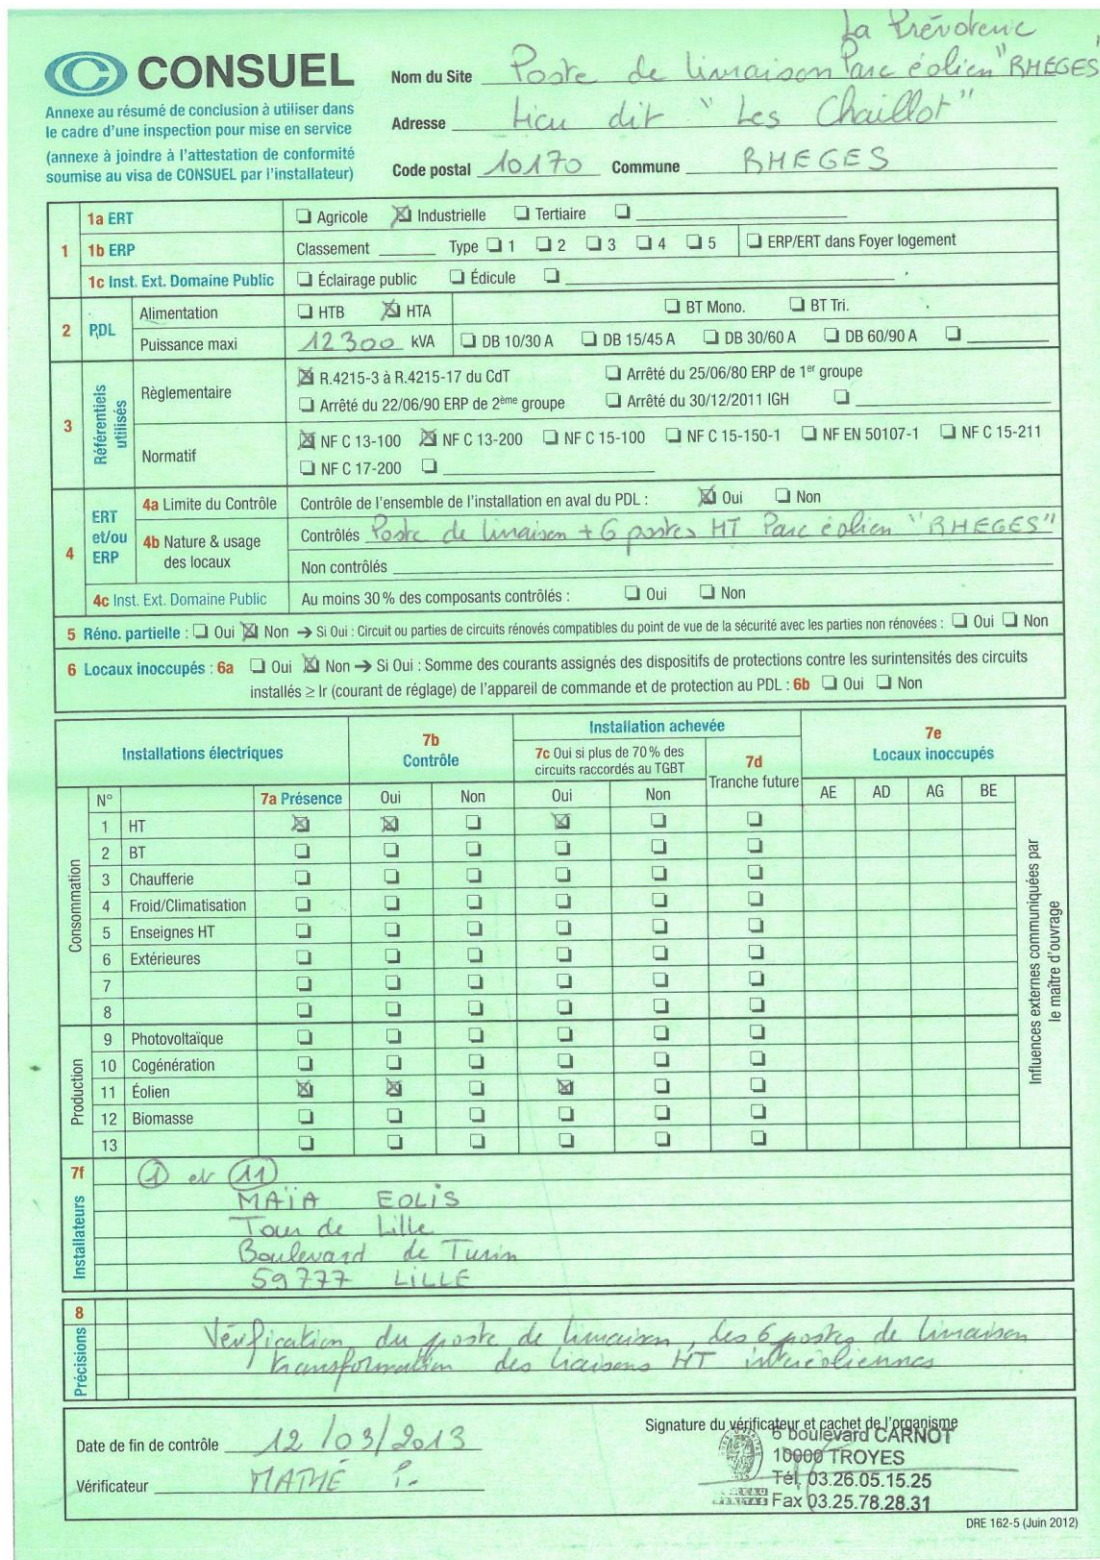 La Prévoterie
CONSUEL
Nom du Site Poste de livraison Parc éolien "RHEGES"
Annexe au résumé de conclusion à utiliser dans
le cadre d'une inspection pour mise en service
Adresse Lieu dit "Les Chaillot"
(annexe à joindre à l'attestation de conformité
soumise au visa de CONSUEL par l'installateur)
Code postal 10170 Commune RHEGES
1
1a ERT ❏ Agricole ☒ Industrielle ❏ Tertiaire ❏
1b ERP Classement Type ❏ 1 ❏ 2 ❏ 3 ❏ 4 ❏ 5 ❏ ERP/ERT dans Foyer logement
1c Inst. Ext. Domaine Public ❏ Éclairage public ❏ Édicule ❏
2 PDL
Alimentation ❏ HTB ☒ HTA ❏ BT Mono. ❏ BT Tri.
Puissance maxi 12300 kVA ❏ DB 10/30 A ❏ DB 15/45 A ❏ DB 30/60 A ❏ DB 60/90 A ❏
3 Référentiels utilisés
Règlementaire ☒ R.4215-3 à R.4215-17 du CdT ❏ Arrêté du 25/06/80 ERP de 1er groupe
❏ Arrêté du 22/06/90 ERP de 2ème groupe ❏ Arrêté du 30/12/2011 IGH ❏
Normatif ☒ NF C 13-100 ☒ NF C 13-200 ❏ NF C 15-100 ❏ NF C 15-150-1 ❏ NF EN 50107-1 ❏ NF C 15-211
❏ NF C 17-200 ❏
4 ERT et/ou ERP
4a Limite du Contrôle Contrôle de l'ensemble de l'installation en aval du PDL : ☒ Oui ❏ Non
4b Nature & usage des locaux Contrôlés Poste de livraison + 6 postes HT Parc éolien "RHEGES"
Non contrôlés
4c Inst. Ext. Domaine Public Au moins 30 % des composants contrôlés : ❏ Oui ❏ Non
5 Réno. partielle : ❏ Oui ☒ Non → Si Oui : Circuit ou parties de circuits rénovés compatibles du point de vue de la sécurité avec les parties non rénovées : ❏ Oui ❏ Non
6 Locaux inoccupés : 6a ❏ Oui ☒ Non → Si Oui : Somme des courants assignés des dispositifs de protections contre les surintensités des circuits
installés ≥ Ir (courant de réglage) de l'appareil de commande et de protection au PDL : 6b ❏ Oui ❏ Non
Installations électriques
7b Contrôle
Installation achevée
7c Oui si plus de 70 % des
circuits raccordés au TGBT
7d
Tranche future
7e
Locaux inoccupés
N° 7a Présence Oui Non Oui Non AE AD AG BE
Consommation
1 HT ☒ ☒ ❏ ☒ ❏ ❏
2 BT ❏ ❏ ❏ ❏ ❏ ❏
3 Chaufferie ❏ ❏ ❏ ❏ ❏ ❏
4 Froid/Climatisation ❏ ❏ ❏ ❏ ❏ ❏
5 Enseignes HT ❏ ❏ ❏ ❏ ❏ ❏
6 Extérieures ❏ ❏ ❏ ❏ ❏ ❏
7 ❏ ❏ ❏ ❏ ❏ ❏
8 ❏ ❏ ❏ ❏ ❏ ❏
Production
9 Photovoltaïque ❏ ❏ ❏ ❏ ❏ ❏
10 Cogénération ❏ ❏ ❏ ❏ ❏ ❏
11 Éolien ☒ ☒ ❏ ☒ ❏ ❏
12 Biomasse ❏ ❏ ❏ ❏ ❏ ❏
13 ❏ ❏ ❏ ❏ ❏ ❏
Influences externes communiquées par
le maître d'ouvrage
7f Installateurs
1 et 11
MAÏA EOLIS
Tour de Lille
Boulevard de Turin
59777 LILLE
8 Précisions
Vérification du poste de livraison, des 6 postes de livraison
transformation des liaisons HT interéoliennes
Date de fin de contrôle 12/03/2013
Vérificateur MATHÉ P.
Signature du vérificateur et cachet de l'organisme
6 boulevard CARNOT
10000 TROYES
Tél. 03.26.05.15.25
BUREAU
VERITAS
Fax 03.25.78.28.31
DRE 162-5 (Juin 2012)